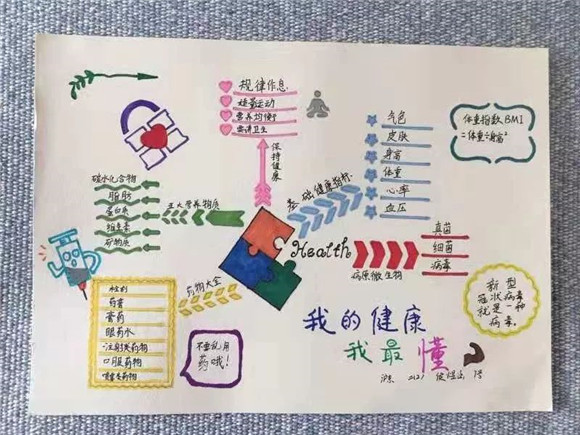 规律作息
适量运动
营养均衡
个讲卫生
保持健康
气色
皮肤
身高
体重
心率
血压
基础健康指标
体重指数BMI
=体重÷身高²
碳水化合物
脂肪
蛋白质
维生素
矿物质
五大营养物质
Health
真菌
细菌
病毒
病原微生物
药物大全
药膏
膏药
眼药水
注射类药物
口服药物
不要乱用
药哦!
新型
冠状病毒
就是一种
病毒。
我的健康
我最懂